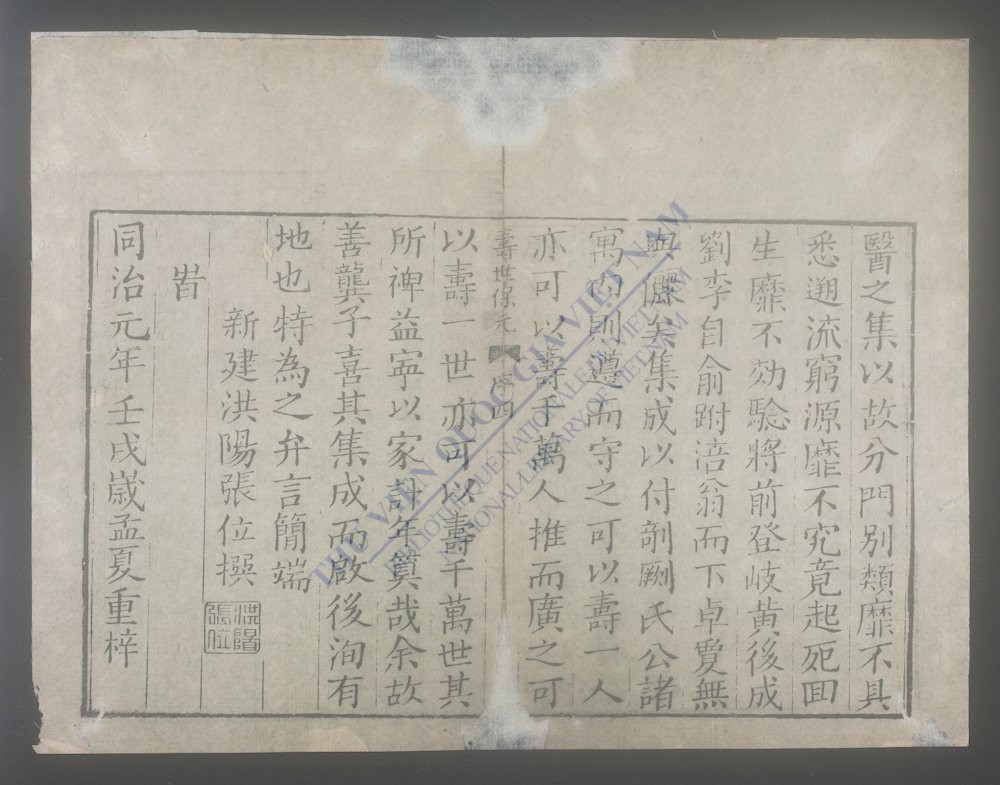 醫之集以故分門別類靡不具
悉遡流窮源靡不究竟起死回
生靡不効驗將前登岐黃後成
劉李自俞跗涪翁而下卓夐無
與儷矣集成以付剞劂氏公諸
寓內則遵而守之可以壽一人
亦可以壽千萬人推而廣之可
壽世保元 序四
以壽一世亦可以壽千萬世其
所裨益寧以家計年筭哉余故
善龔子喜其集成而啟後洵有
地也特為之弁言簡端
新建洪陽張位撰
洪陽張位
旹
同治元年壬戌歲孟夏重梓
THƯ VIỆN QUỐC GIA VIỆT NAM
BIBLIOTHÈQUE NATIONALE DU VIETNAM
NATIONAL LIBRARY OF VIETNAM